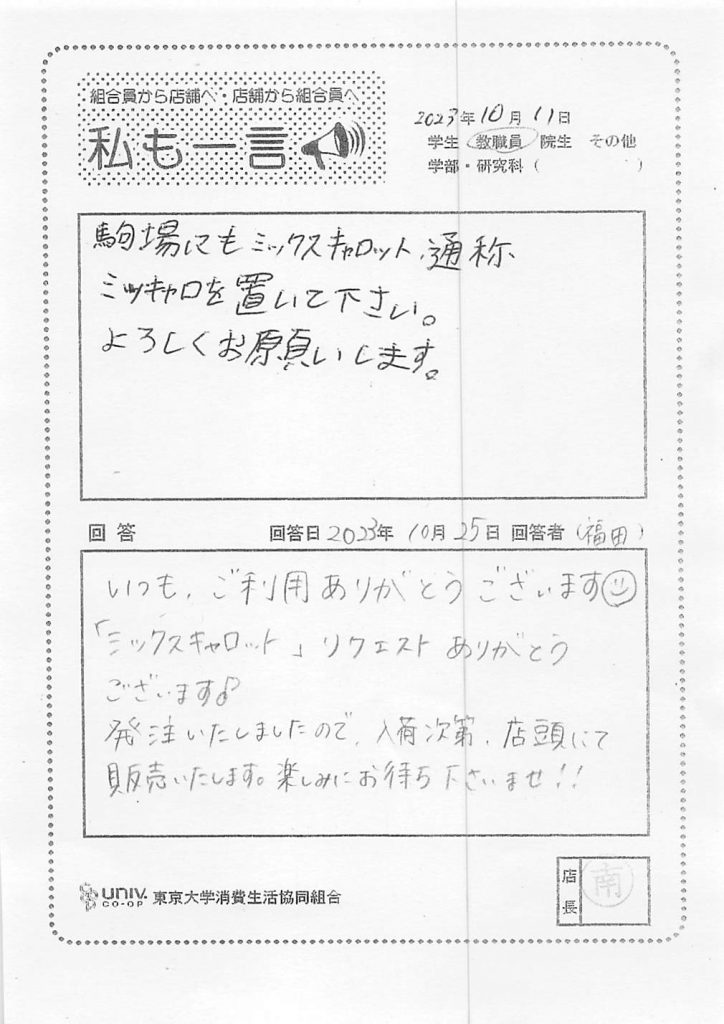 組合員から店舗へ・店舗から組合員へ
私も一言
2023年10月11日
学生 教職員 院生 その他
学部・研究科( )
駒場にもミックスキャロット、通称
ミツキャロを置いて下さい。
よろしくお願いします。
回答 回答日2023年 10月25日 回答者(福田)
いつも、ご利用ありがとうございます
「ミックスキャロット」リクエストありがとう
ございます♪
発注いたしましたので、入荷次第、店頭にて
販売いたします。楽しみにお待ち下さいませ!!
UNIV.
CO-OP
東京大学消費生活協同組合
店長
南